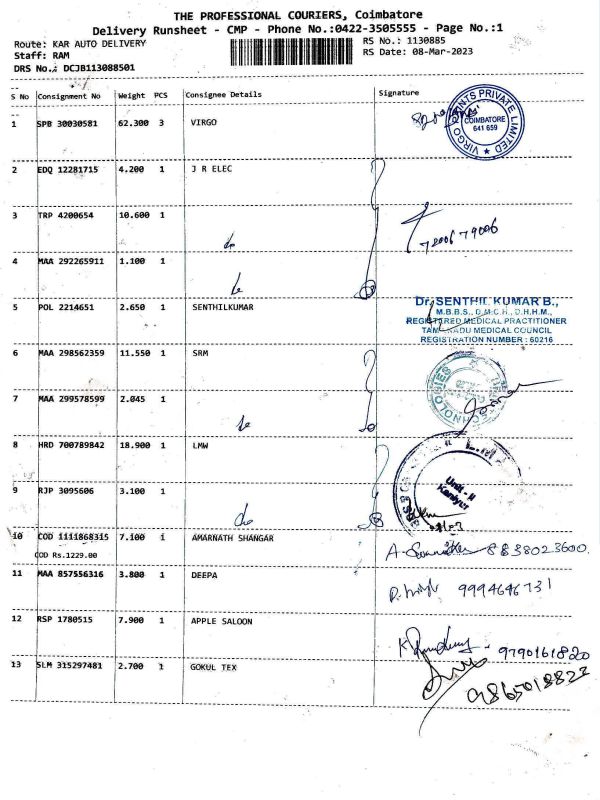 THE PROFESSIONAL COURIERS, Coimbatore
Delivery Runsheet - CMP - Phone No.:0422-3505555 - Page No.:1
Route: KAR AUTO DELIVERY RS No.: 1130885
Staff: RAM RS Date: 08-Mar-2023
DRS No.: DCJB113088501
S No Consignment No Weight PCS Consignee Details Signature
1 SPB 30030581 62.300 3 VIRGO
VIRGO PRINTS PRIVATE LIMITED
COIMBATORE
641 659
2 EDQ 12281715 4.200 1 J R ELEC
3 TRP 4200654 10.600 1
do 7800679006
4 MAA 292265911 1.100 1
5 POL 2214651 2.650 1 SENTHILKUMAR
Dr. SENTHIL KUMAR B.,
M.B.B.S., D.M.C.H., D.H.H.M.,
REGISTERED MEDICAL PRACTITIONER
TAMILNADU MEDICAL COUNCIL
REGISTRATION NUMBER : 60216
6 MAA 298562359 11.550 1 SRM
TECHNOLOGIES
7 MAA 299578599 2.045 1
8 HRD 700789842 18.900 1 LMW
Unit - II
Kaniyur
9 RJP 3095606 3.100 1
do
10 COD 1111868315 7.100 1 AMARNATH SHANGAR
COD Rs.1229.00 8838023600.
11 MAA 857556316 3.800 1 DEEPA
9994646731
12 RSP 1780515 7.900 1 APPLE SALOON
9790161820
13 SLM 315297481 2.700 1 GOKUL TEX
9865018822